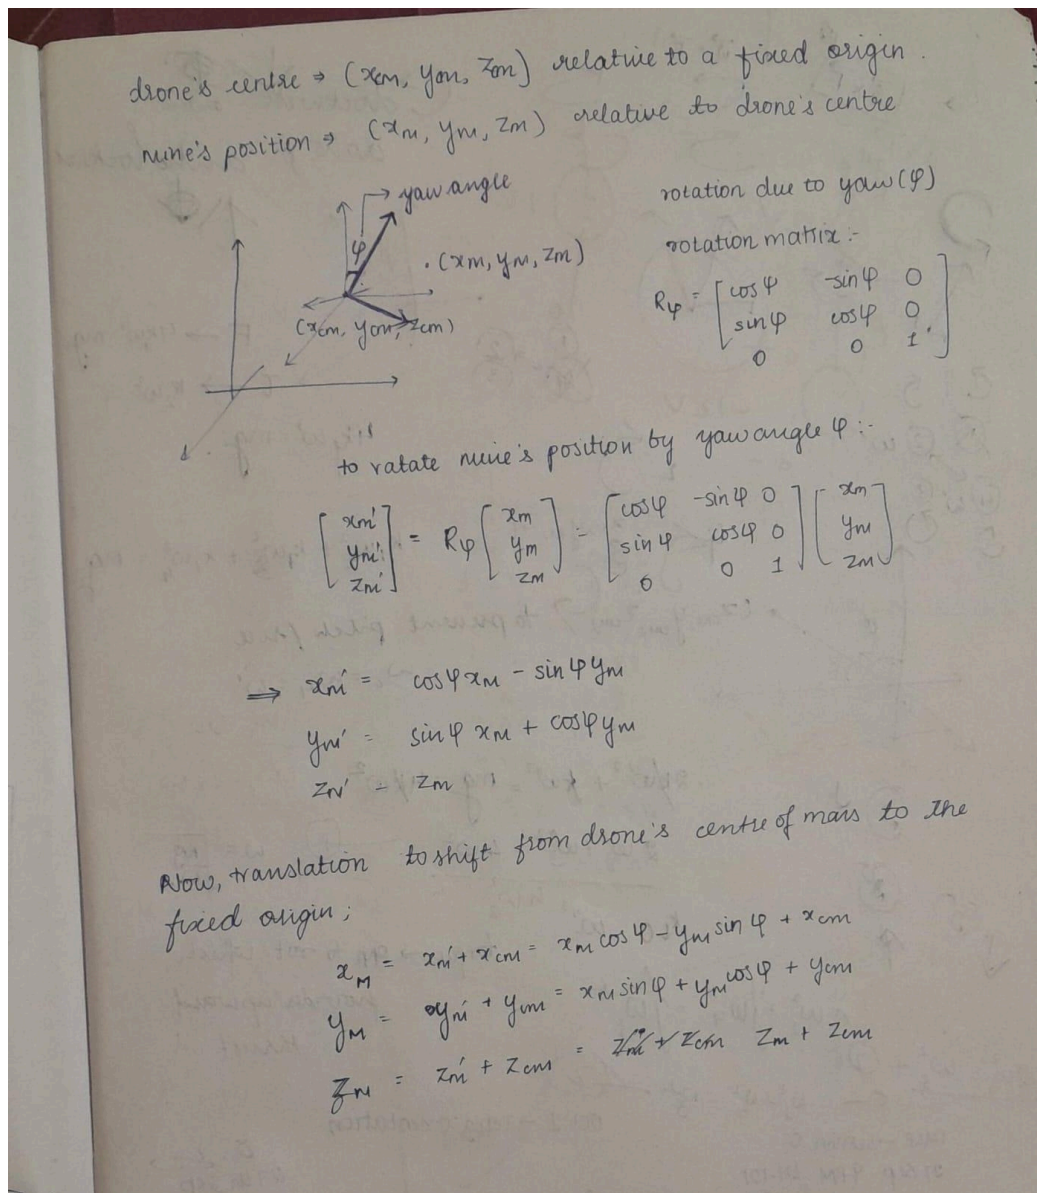 drone's centre ⇒ (xcm, ycm, zcm) relative to a fixed origin.
mine's position ⇒ (xm, ym, zm) relative to drone's centre
yaw angle
φ
. (xm, ym, zm)
(xcm, ycm, zcm)
rotation due to yaw (φ)
rotation matrix :-
Rφ = [ cosφ -sinφ 0
sinφ cosφ 0
0 0 1 ]
to ratate mine's position by yaw angle φ :-
[ xm' ym' zm' ] = Rφ [ xm ym zm ] = [ cosφ -sinφ 0
sinφ cosφ 0
0 0 1 ] [ xm ym zm ]
⇒ xm' = cosφ xm - sinφ ym
ym' = sinφ xm + cosφ ym
zm' = zm
Now, translation to shift from drone's centre of mass to the
fixed origin;
xM = xm' + xcm = xm cosφ - ym sinφ + xcm
yM = ym' + ycm = xm sinφ + ym cosφ + ycm
zM = zm' + zcm = zm + zcm